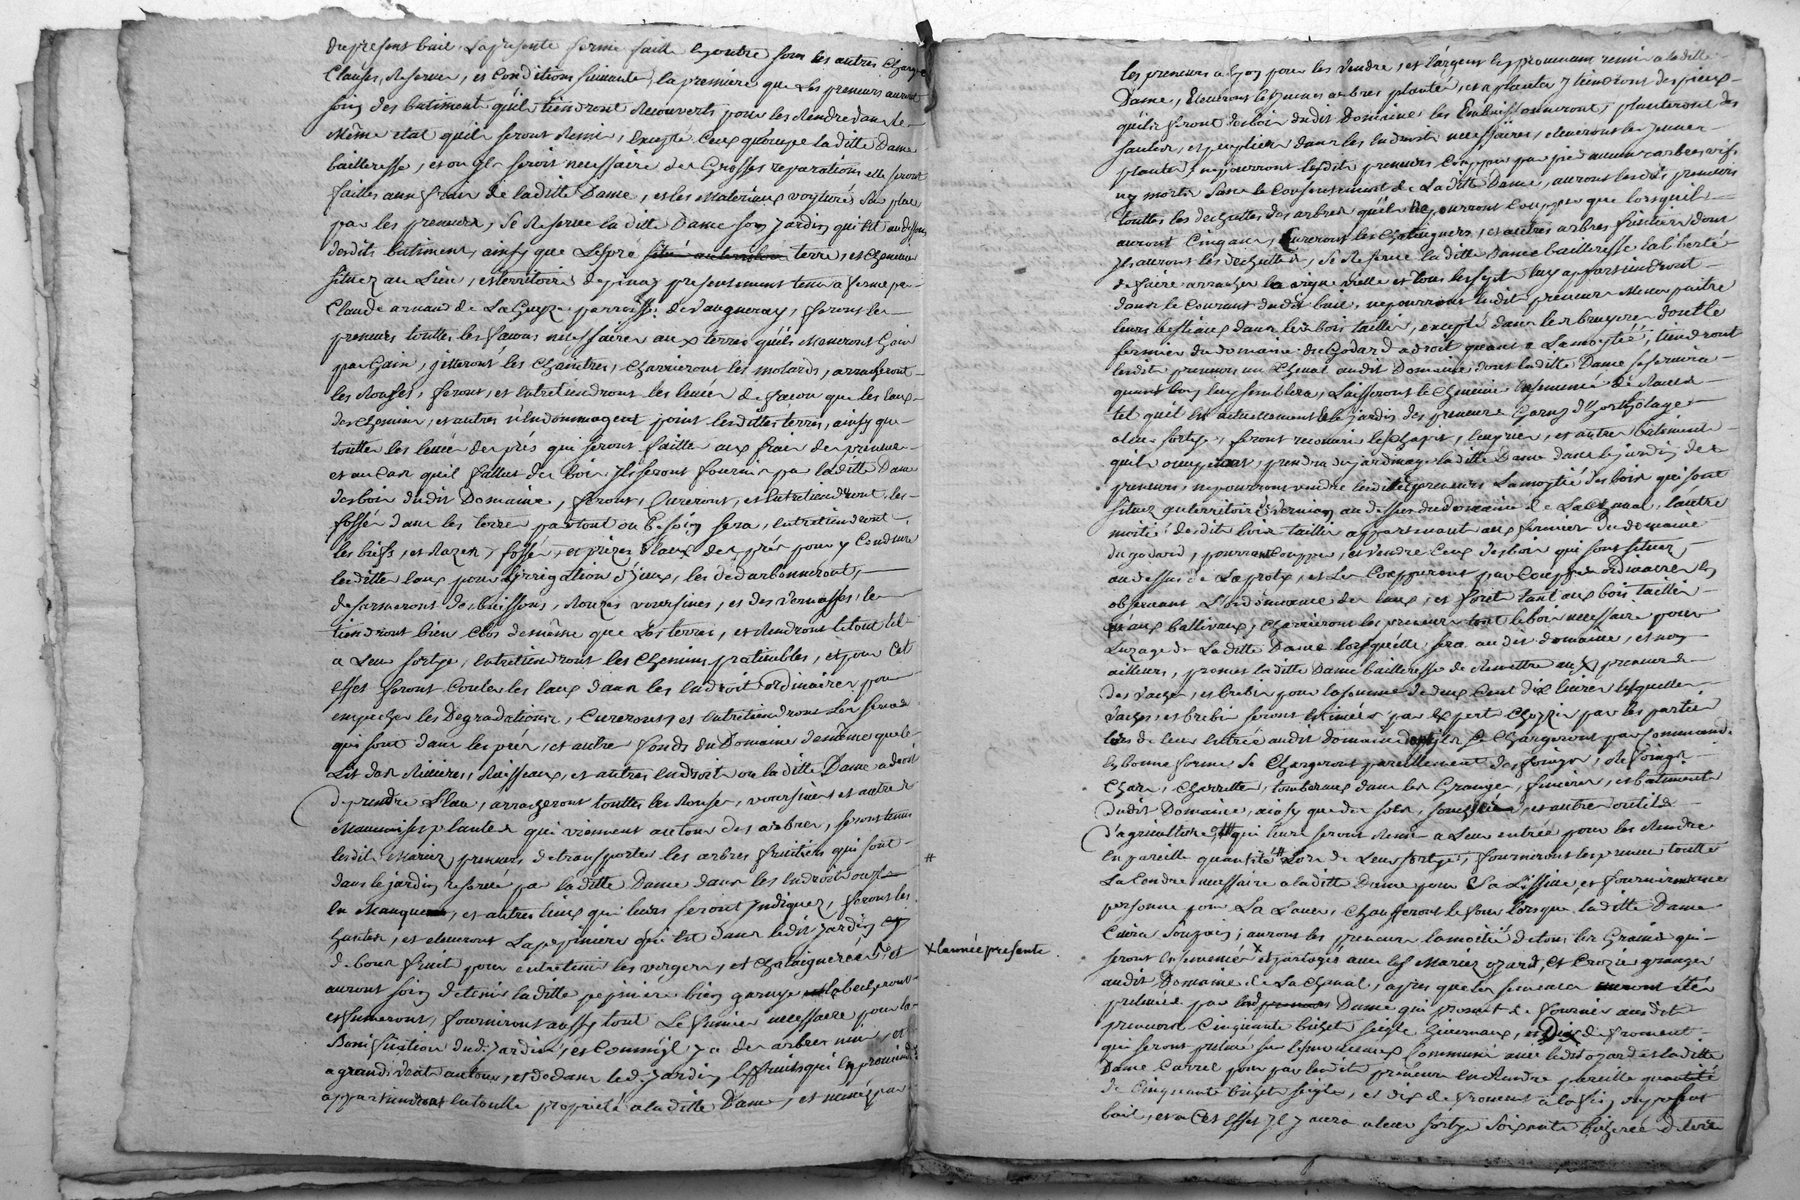 du present bail. La presente ferme faitte En outre sous les autres Charges
Clauses, Reserves, et Conditions suivantes, la premiere que Les preneurs auront
soin des batiment qu'ils tiendront Recouverts pour les Rendre dans le
Même etat qu'ils seront Remis, Excepté Ceux qu'occupe la ditte Dame
bailleresse, et ou Il seroit necessaire de Grosses reparations elle seront
faittes aux frais de la ditte Dame, et les Materiaux voyturé Sur place
par les preneurs, Se Reserve la ditte Dame son Jardin qui Est au dessous
desdits batiment, ainsy que Le pré situé au territoire terre, et Cheneviere
situez au Lieu, et territoire de pinay presentement tenu a ferme par
Claude arnaud de La paroisse de Vaugneray, feront les
preneurs touttes les facons necessaires aux terres qu'ils Meneront Gain
par Gain, jetteront les Chaintres, Charrieront les molards, arracheront
les Ronses, feront, et Entretiendront les levées de facon que les Eaux
des Chemins, et autres n'Endommagent point lesdittes terres, ainsy que
touttes les levées des prés qui seront faitte aux frais des preneurs
et au Cas qu'il fallut des bois Ils seront fournis par la ditte Dame
des bois dudit Domaine, feront, Cureront, et Entretiendront les
fossés dans les terres partout ou besoin sera, Entretiendront
les biefs, et Razes, fossés, et prizes d'Eaux des prés pour y Conduire
lesdittes Eaux pour l'irrigation d'yceux, les dedarbonneront,
desarmeront des buissons, Ronzes voursines, et des Vernasses, le
tiendront bien Clos de même que Les terres, et Rendront le tout tel
a Leur sortye, Entretiendront les Chemins pratiquables, et pour Cet
effet feront Couler les Eaux dans les Endroit ordinaires pour
empecher les Degradations, Cureront, et Entretiendront Les serves
qui sont dans les prés, et autre fonds du Domaine de même que le
Lit des Rivieres, Ruisseaux, et autres Endroit ou la ditte Dame a droit
de prendre L'Eau, arracheront touttes les Ronses, voursines et autres
Mauvaises plantes qui viennent autour des arbres, seront tenus
lesdits Mariez preneurs de transporter les arbres fruitiers qui sont
dans le jardin reservé par la ditte Dame dans les Endroit ou
En Manquera, et autres lieux qui leurs seront Indiquez, feront les
hantes, et eleveront La pepiniere qui Est dans ledit Jardin
de bons fruit pour entretenir les vergers, et Chataignerée, et
auront soin de tenir la ditte pepiniere bien garnye la becheront
et fumeront, fourniront aussy tout Le fumier necessaire pour la
Bonification dud. Jardin, et Comm'il y a des arbres nins et
a grand vent autour, et dedans led. Jardin les fruits qui En proviendront
appartiendront En toutte propriété a la ditte Dame, et
#
X l'année presente
les preneurs a Lyon pour les Vendre, et l'argent En provenant remis a la ditte
Dame, Eleveront les jeunes arbres plantés, et a planter y tiendront des pieux
qu'ils feront des bois dudit Domaine, les Embuissonneront, planteront des
saules, et peupliers dans les Endroit necessaires, eleveront les jeunes
plants, ne pourront lesdits preneurs Couper par pied aucuns arbres vifs
ny morts sans le Consentement de La ditte Dame, auront lesdits preneurs
touttes les dechuttes des arbres qu'ils Ne pourront Coupper que lorsquil
auront Cinq ans, Cureront les Chataigners, et autres arbres fruitiers dont
Ils auront les dechuttes, Se Reserve la ditte Dame bailleresse la liberté
de faire arracher la vigne vielle et tous les seps luy appartiendront
dans le Courant dudit bail, ne pourront lesdit preneurs Mener paître
leurs bestiaux dans les bois taillis, excepté dans les bruyeres dont le
fermier du domaine du Godard a droit quant a La moytié, tiendront
lesdits preneurs un Cheval audit Domaine, dont la ditte Dame se servira
quand bon luy semblera, Laisseront le Chemin Ensemencé de Raves
tel quil Est actuellement & le Jardin des preneurs Garny d'Hortolages
a leur sortye, feront ramoner le Chapit, l'ecurie, et autres batiments
quils occuperont, prendra du jardinage la ditte Dame dans le jardin des
preneurs, ne pourront vendre lesdits preneurs La moytié des bois qui sont
situez au territoire d'Evernay au dessus du domaine de La Chenal, l'autre
moitié desdits bois taillis appartenant aux fermier du domaine
du godard, pourront Couppes, et vendre Ceux des bois qui sont situez
au dessus de La prote, et Les Coupperont par Couppes ordinaires En
observant L'ordonnance des Eaux, et foret tant aux bois taillis
et aux ballivaux, Charrieront les preneurs tout le bois necessaire pour
L'usage de La ditte Dame lorsquelle sera audit domaine, et non
ailleurs, promet la ditte Dame bailleresse de Remettre aux preneurs
des Vaches, et brebis pour la somme de deux Cent dix livres lesquelles
Vaches, et brebis seront Estimées par Expert Choisis par les parties
lors de leur Entrée audit domaine dont Ils Se Chargeront par Commande
En bonne forme, Se Chargeront pareillement des foingt, de foingt
Chars, Charrette, tombereaux dans les Granges, fenieres, et batiments
dudit Domaine, ainsy que des socs, et autre outils
d'agriculture # qui leurs seront Remis a Leur entrée pour les Rendre
En pareille quantité Lors de Leur sortye, fourniront les preneurs toutte
La Cendre necessaire a la ditte Dame pour Sa Lissive et fourniront une
personne pour La Laver, Chaufferont le four lorsque la ditte Dame
Cuira Son pain, auront les preneurs la moitié de tous les Grains qui
seront Ensemencé X et partagés avec les Mariez ozard, et Crozier granger
audit Domaine de La Chenal, apres que les semences auront été
prelevée par les preneurs Dame qui promet de fournir ausdits
preneurs Cinquante bichet seigle hivernaux, et Dix de froment
qui seront prelevé sur les monceaux Communs avec ledit ozard et la ditte
Dame Carrel pour par lesdits preneurs En Rendre pareille quantité
de Cinquante bichet seigle, et dix de froment a la fin du present
bail, et a Cet Effet Il y aura a leur sortye Soixante bicherée de terre